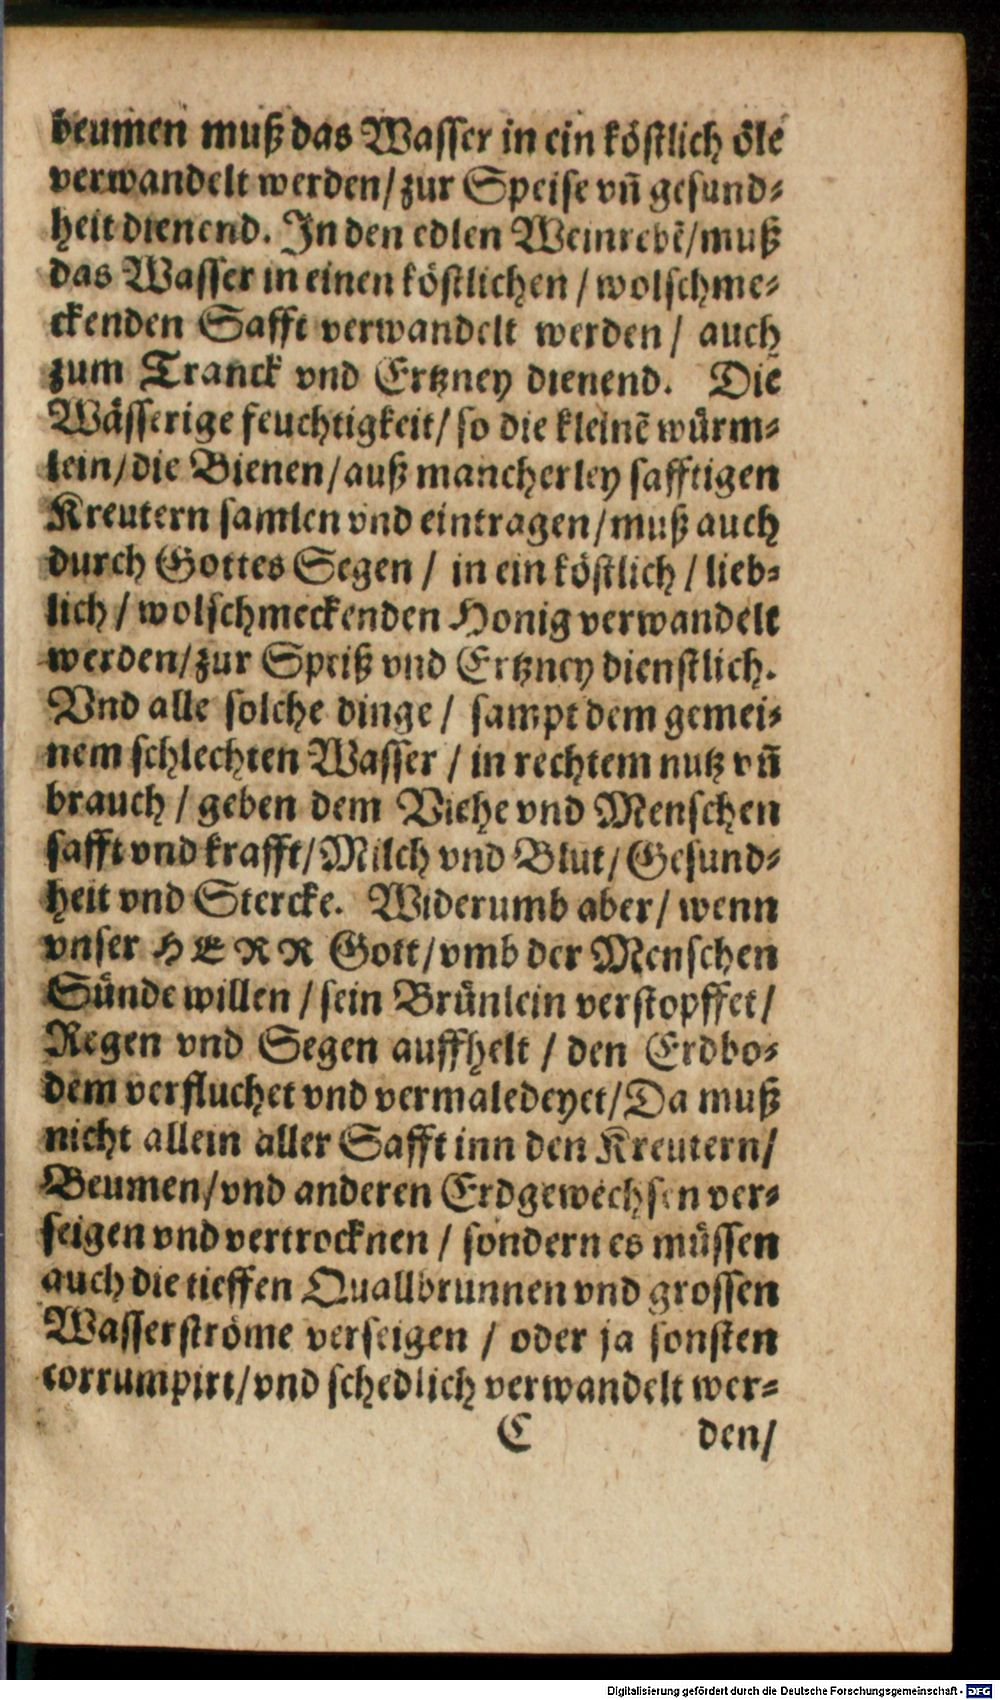 beumen muß das Wasser in ein köstlich öle
verwandelt werden/ zur Speise vn̄ gesund-
heit dienend. In den edlen Weinrebē/ muß
das Wasser in einen köstlichen / wolschme-
ckenden Safft verwandelt werden / auch
zum Tranck vnd Ertzney dienend. Die
Wässerige feuchtigkeit/ so die kleinē würm-
lein/ die Bienen/ auß mancherley safftigen
Kreutern samlen vnd eintragen/ muß auch
durch Gottes Segen / in ein köstlich / lieb-
lich / wolschmeckenden Honig verwandelt
werden/ zur Speiß vnd Ertzney dienstlich.
Vnd alle solche dinge / sampt dem gemei-
nem schlechten Wasser / in rechtem nutz vn̄
brauch / geben dem Viehe vnd Menschen
safft vnd krafft/ Milch vnd Blut/ Gesund-
heit vnd Stercke. Widerumb aber/ wenn
vnser HERR Gott/ vmb der Menschen
Sünde willen / sein Brünlein verstopffet/
Regen vnd Segen auffhelt / den Erdbo-
dem verfluchet vnd vermaledeyet/ Da muß
nicht allein aller Safft inn den Kreutern/
Beumen/ vnd anderen Erdgewechsen ver-
seigen vnd vertrocknen / sondern es müssen
auch die tieffen Quallbrunnen vnd grossen
Wasserströme verseigen / oder ja sonsten
corrumpirt/ vnd schedlich verwandelt wer-
C den/
Digitalisierung gefördert durch die Deutsche Forschungsgemeinschaft - DFG